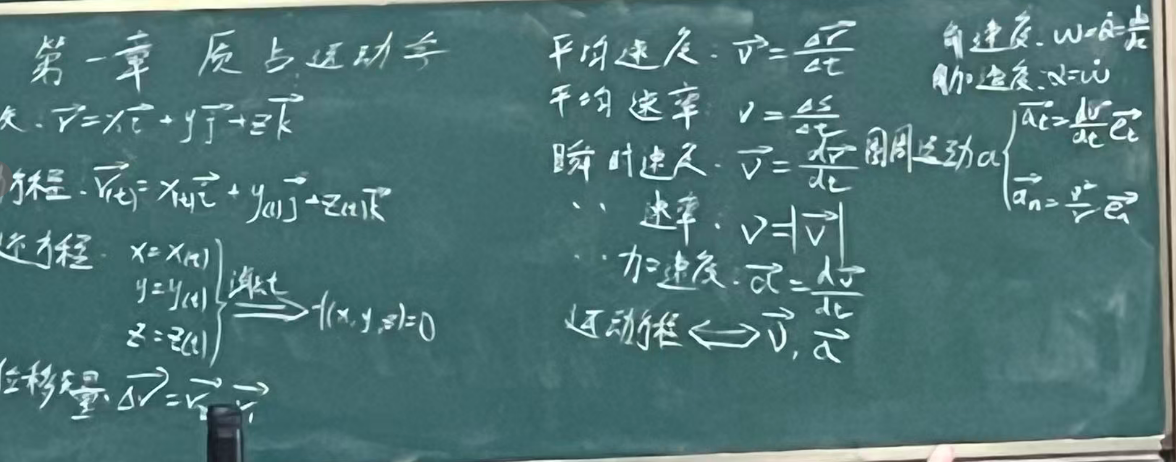 第一章 质点运动学
矢. r⃗=xi⃗+yj⃗+zk⃗
方程. r⃗(t)=x(t)i⃗+y(t)j⃗+z(t)k⃗
方程. x=x(t)
y=y(t)
z=z(t)
消去t ⟹ f(x,y,z)=0
位移矢量. Δr⃗=r⃗₂ r⃗₁
平均速度. v⃗=Δr⃗/Δt
平均速率 v=Δs/Δt
瞬时速度. v⃗=dr⃗/dt
‥ 速率. v=|v⃗|
‥ 加速度. a⃗=dv⃗/dt
运动方程⟺v⃗, a⃗
角速度. ω=θ̇=dθ/dt
角加速度. α=ω̇
圆周运动a { a⃗t=dv/dt e⃗t
a⃗n=v²/r e⃗n